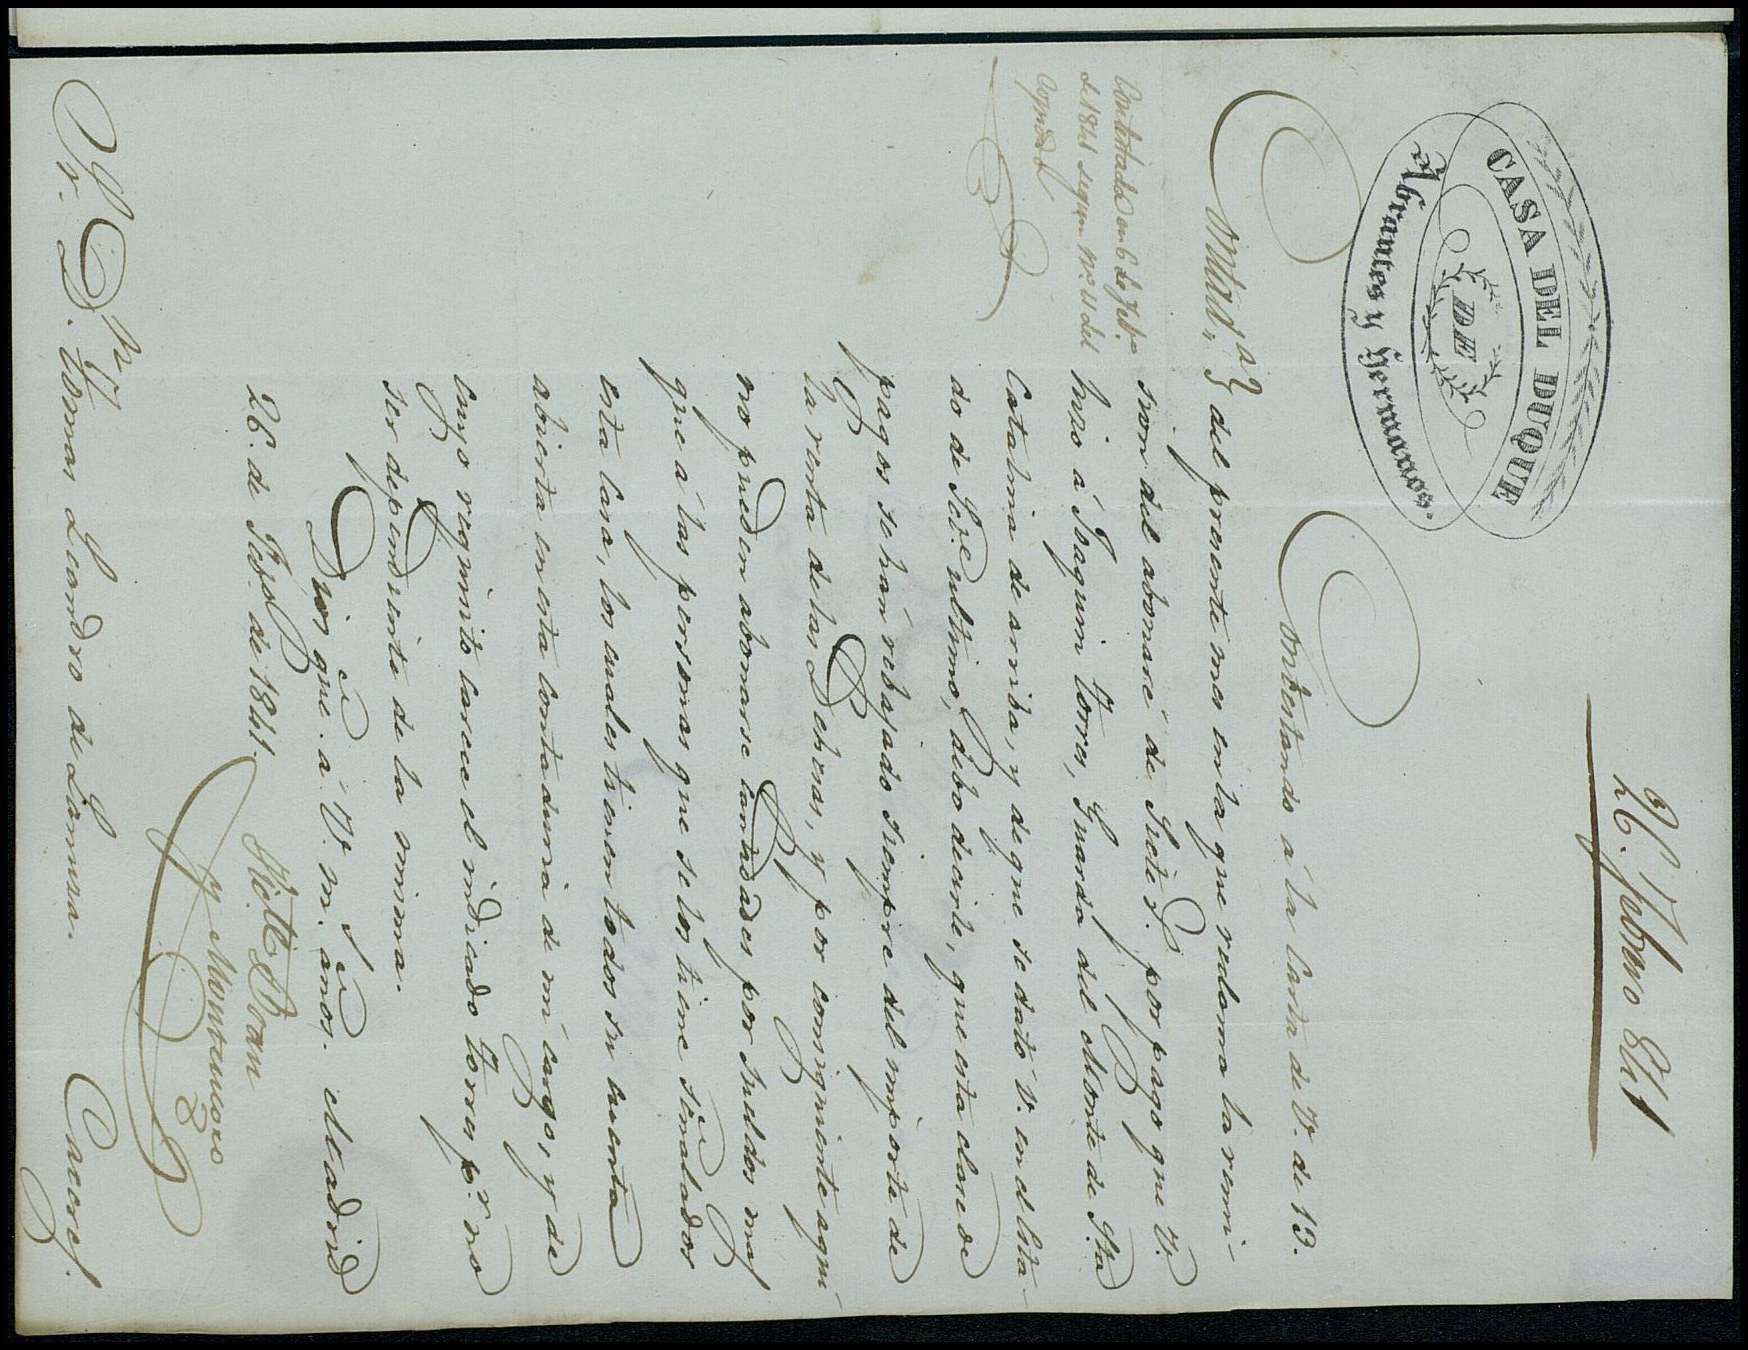 26. Febrero 841
CASA DEL DUQUE
DE
Abrantes y Hermanos.
Contad.ª}
Contestando á la Carta de V. de 13.
del presente mes en la que reclama la remi-
sion del abonaré de Siete d. por pago que V.
hizo á Joaquin Torres, Guarda del Monte de Sta
Catalina de arriba, y de que se dató V. en el esta-
do de Set.e ultimo, debo decirle, que esta clase de
pagos se hán rebajado siempre del importe de
la renta de las Dehesas, y por consiguiente aqui
no pueden abonarse cantidades por sueldos mas
que á las personas que se los tiene señalados
esta Casa, los cuales tienen todos su cuenta
abierta en esta Contaduria de mi cargo, y de
cuyo requisito carece el indicado Torres p.r no
ser dependiente de la misma.
Dios gue. á V. m.s años. Madrid
26. de Feb.o de 1841.
Contestado en 6 de
de 1841 segun N.º 21 del
Copiad.r
y Montenegro
Sr. D.n Tomas Leandro de Lamusa. Caceres.